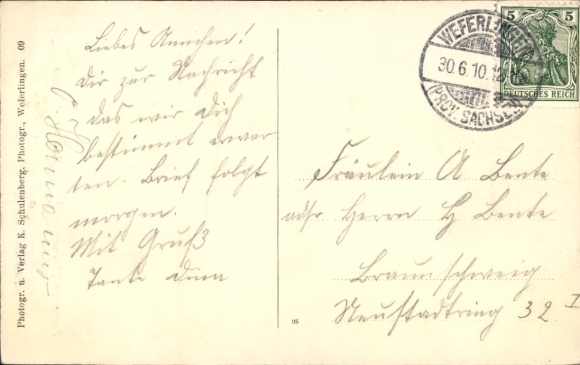 Photogr. u. Verlag K. Schulenberg, Photogr., Weferlingen. 09
Liebes Annchen!
Dir zur Nachricht
das wir Dich
bestimmt erwar
ten. Brief folgt
morgen.
Mit Gruß
Tante
95
WEFERLINGEN
30.6.10.
(PROV. SACHSEN)
5 5
DEUTSCHES REICH
Fräulein A Bente
adr Herrn H Bente
Braunschweig
Neustadtring 32 I